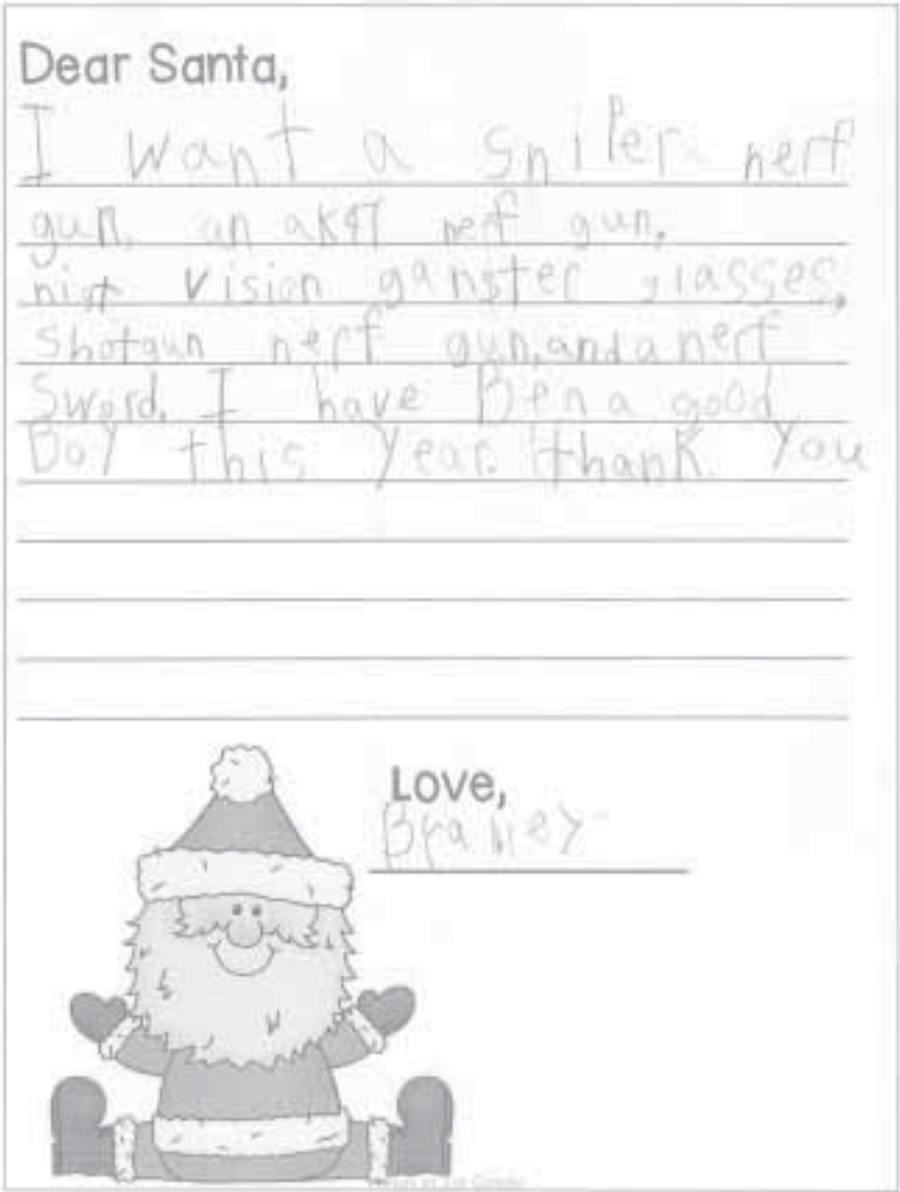 Dear Santa,
I want a sniper nerf
gun, an ak47 nerf gun,
nigt vision ganster glasses,
shotgun nerf gun, and a nerf
Sword. I have Ben a good
Boy this year. thank you
Love,